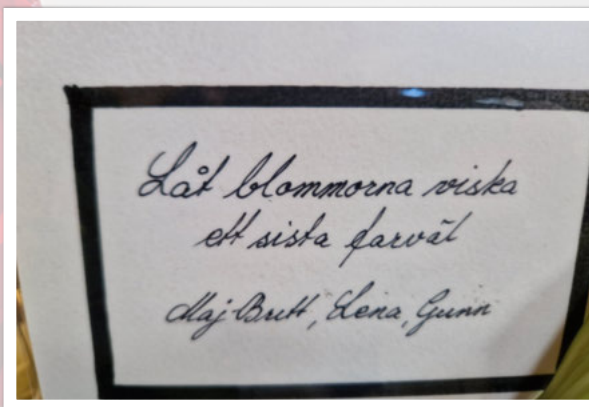 Låt blommorna viska
ett sista farväl
Maj-Britt, Lena, Gunn